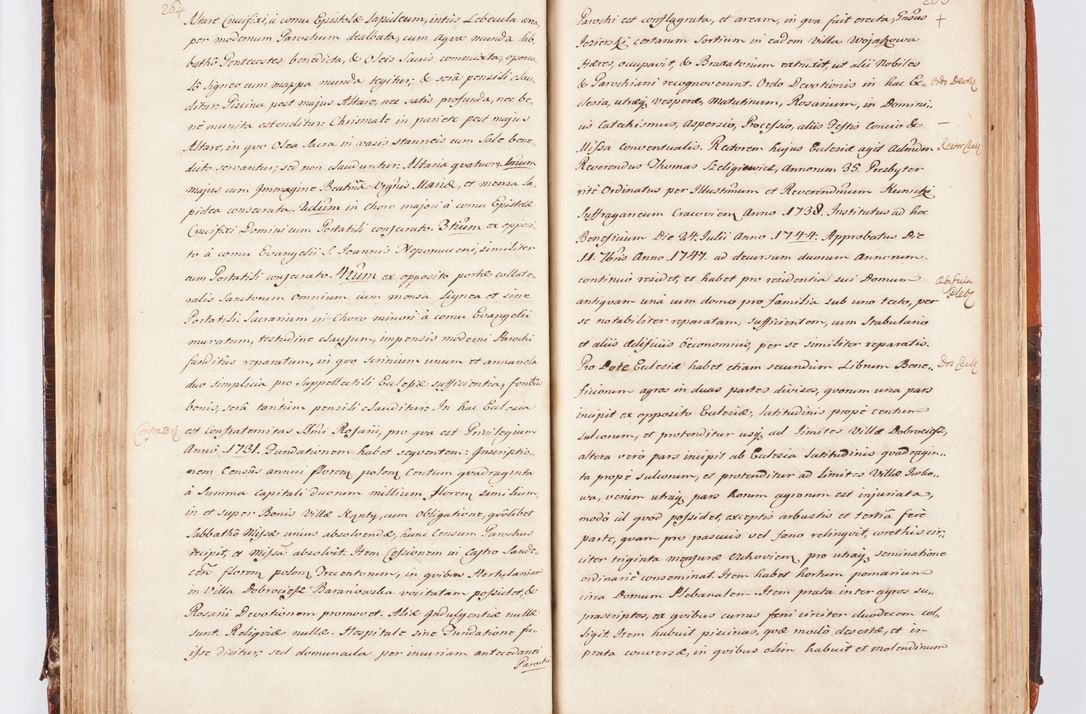 264
Altare Crucifixi, à cornu Epistolæ lapideum, intùs Lebecula
per modernum Parochum dealbata, cum aqua munda Sab,,
batho Pentecostes benedita, & Oleis Sacris commixta, operiu,,
lo ligneo cum mappa munda tegitur, & serâ pensili clau,,
ditur. Piscina post majus Altare, nec satis profunda, nec be,,
nè munita ostenditur. Chrismale in pariete post majus
Altare, in quo Olea Sacra in vasis stanneis cum Sale bene,,
dicto servantur, sed non clauduntur. Altaria quatuor. 1mum
majus cum Immagine Beatmæ Virginis Mariæ, et mensa la,,
pidea consecrata. 2dum in Choro majori à cornu Epistolæ
Crucifixi Domini cum Portatili consecrato. 3tium ex opposi,,
to à cornu Evangelii S. Joannis Nepomuceni, similiter
cum Portatili consecrato. 4tum ex opposito portæ collate,,
ralis Sanctorum Omnium cum mensa lignea et sine
Portatili. Sacrarium in Choro minori à cornu Evangelii
muratum, testudine clausum, impensis moderni Parochi
funditùs reparatum, in quo scrinium unum et armariola
duo simplicia pro Suppellectili Ecclesiæ sufficientia, foribus
bonis, serâ tantùm pensili clauditur. In hac Ecclesia
Confratert
est Confraternitas Ssmi Rosarii, pro qua est Privilegium
Anno 1731. Fundationem habet sequentem: Inscriptio,,
nem Censûs annui floren polon Centum quadraginta
à Summa Capitali duorum millium floren similium,
in et super Bonis Villæ Kąnty, cum Obligatione, quolibet
Sabbatho Missæ unius absolvendæ, hunc Censum Parochus
recipit, et Missa absolvit. Item Cessionem in Castro Sande,,
cen floren polon Trecentorum, in quibus Hortulaniam
in Villa Dobrociesz Baranowska vocitatam possidet, &
Rosarii Devotionem promovet. Aliæ Indulgentiæ nullæ
sunt. Reliquiæ nullæ. Hospitale sine Fundatione fu,,
isse dicitur, sed domuncula per incuriam antecedanei
Parochi
Parochi est conflagrata, et aream, in qua fuit erecta, Gnosus
Jezierski certarum Sortium in eadem Villa Wojakowa
Hæres, occupavit, & Braxatorium extruxit, ut alii Nobiles
& Parochiani recognoverunt. Ordo Devotionis in hac Ec,,
clesia, utraq Vesperæ, Matutinum, Rosarium, in Domini,,
cis Catechismus, Aspersio, Processio, aliis Festis Concio &
Missa Conventualis. Rectorem hujus Ecclesiæ agit Admdum
Reverendus Thomas Szeligiewicz, Annorum 35. Presbyter
ritè Ordinatus per Illustrimum et Reverendmum Kunicki
Suffraganeum Cracovien Anno 1738. Institutus ad hoc
Beneficium Die 24. Julii Anno 1744. Approbatus Die
11. 7bris Anno 1747. ad decursum duorum Annorum.
continuò residet, et habet pro residentia sui Domum
antiquam unà cum domo pro familia sub uno tecto, per
se notabiliter reparatam, sufficientem, cum Stabulario
et aliis ædificiis œconomicis, per se similiter reparatis.
Pro Dote Ecclesiæ habet etiam secundùm Librum Bene,,
ficiorum agros in duas partes divisos, quorum una pars
incipit ex opposito Ecclesiæ, latitudinis propè centum
sulcorum, et protenditur usq ad limites Villæ Dobrociesz,
altera verò pars incipit ab Ecclesia latitudinis quadragin,,
ta propè sulcorum, et protenditur ad limites Villæ
wa, verùm utraq pars horum agrorum est injuriata,
modò id quod possidet, exceptis arbustis et tertiâ ferè
parte, quam pro pascuis vel fœno relinquit, corethis cir,,
citer triginta mensuræ Czchovien pro utraq seminatione
ordinariè conseminat. Item habet hortum pomarium
circa Domum Plebanalem. Item prata inter agros su,,
prascriptos, ex quibus currus fœni circiter duodecim col,,
ligit. Item habuit piscinas, quæ modò desertæ, et in
prata conversæ, in quibus olim habuit et molendinum